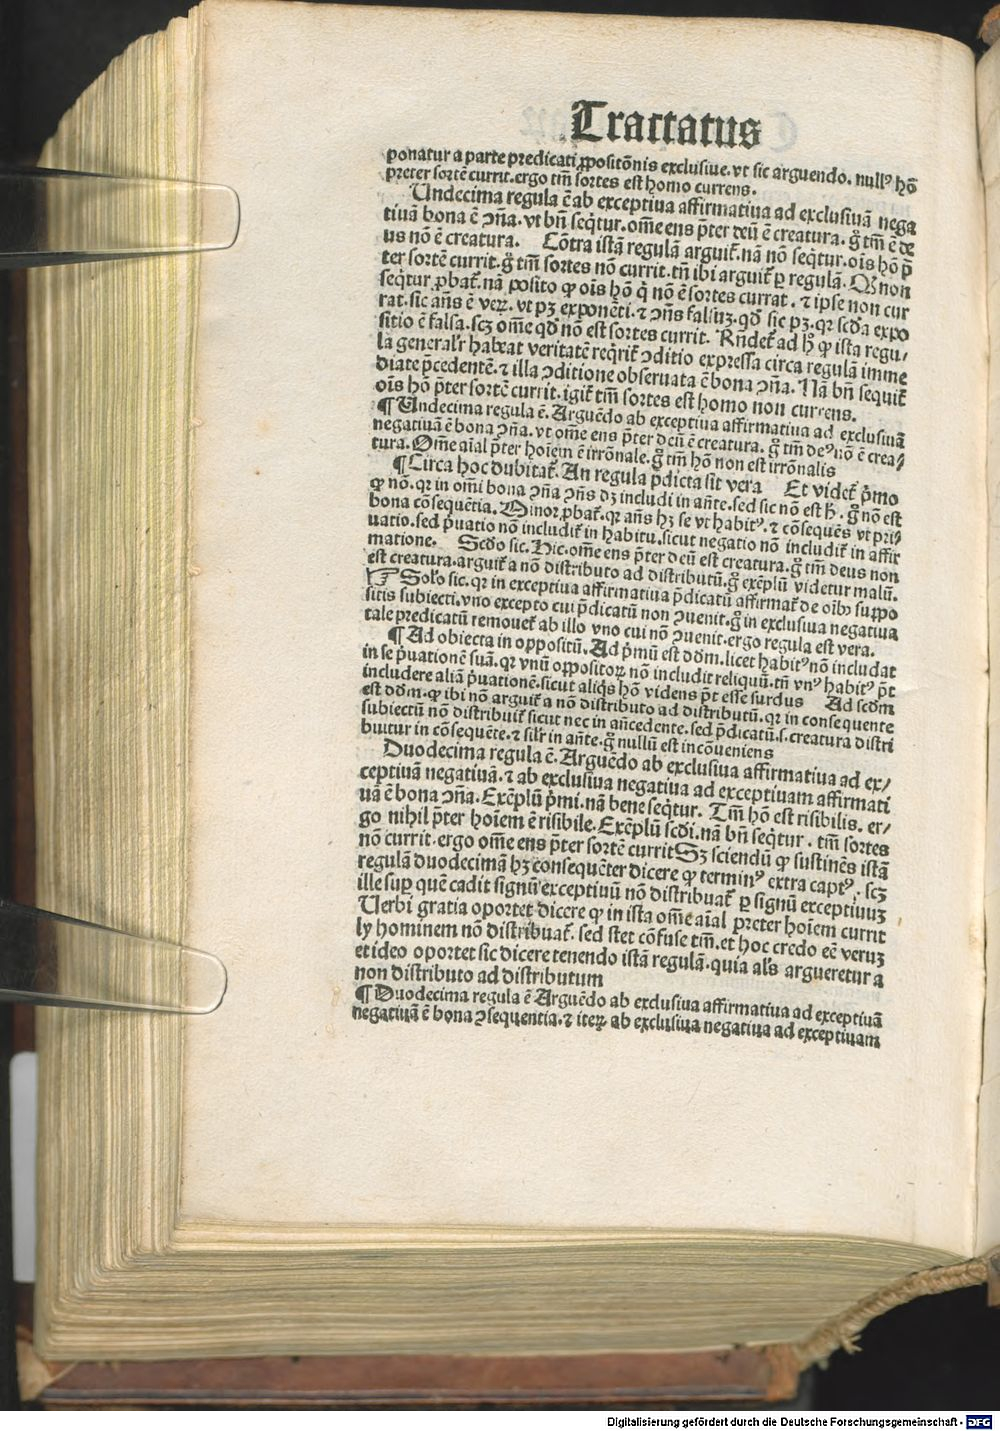 Tractatus
ponatur a parte predicati ꝓpositōnis exclusiue. vt sic arguendo. nullꝰ hō
preter sortē currit. ergo tm̄ sortes est homo currens.
Undecima regula ē ab exceptiua affirmatiua ad exclusiuā nega
tiuā bona ē ↄña. vt bn̄ seq̄tur. om̄e ens p̄ter deū ē creatura. g̊ tm̄ ē de
us nō ē creatura. Cōtra istā regulā arguit᷑. nā nō seq̄tur. oīs hō p̄
ter sortē currit. g̊ tm̄ sortes nō currit. tn̄ ibi arguit᷑ ꝑ regulā. Qꝫ non
seq̄tur ꝓbat᷑. nā posito ꝙ oīs hō q̇ nō ē sortes currat. ⁊ ipse non cur
rat. sic añs ē veꝝ. vt pꝫ exponēti. ⁊ ↄñs falsuꝫ. qd̄ sic pꝫ. qꝛ scd̄a expo
sitio ē falsa. scꝫ om̄e qd̄ nō est sortes currit. Rn̄det᷑ ad h̊ ꝙ ista regu⸗
la general'r habeat veritatē req̇rit᷑ ↄditio expressa circa regulā imme
diate p̄cedentē. ⁊ illa ↄditione obseruata ē bona ↄña. Nā bn̄ sequit᷑
oīs hō p̄ter sortē currit. igit᷑ tm̄ sortes est homo non currens.
¶ Undecima regula ē. Arguēdo ab exceptiua affirmatiua ad exclusiuā
negatiuā ē bona ↄña. vt om̄e ens p̄ter deū ē creatura. g̊ tm̄ deꝰ nō ē crea⸗
tura. Om̄e aīal p̄ter hoīem ē irrōnale. g̊ tm̄ hō non est irrōnalis
¶ Circa hoc dubitat᷑. An regula p̄dicta sit vera Et videt᷑ pͥmo
ꝙ nō. qꝛ in omī bona ↄña ↄñs dꝫ includi in añte. sed sic nō est h̊. g̊ nō est
bona cōsequētia. Minor ꝓbat᷑. qꝛ añs hꝫ se vt habitꝰ. ⁊ cōsequēs vt pri⸗
uatio. sed pͥuatio nō includit᷑ in habitu. sicut negatio nō includit᷑ in affir
matione. Scd̄o sic. Hic. om̄e ens p̄ter deū est creatura. g̊ tm̄ deus non
est creatura. arguit᷑ a nō distributo ad distributū. g̊ exēplū videtur malū.
☞ Sol'o sic. qꝛ in exceptiua affirmatiua p̄dicatū affirmat᷑ de oībꝫ suppo
sitis subiecti. vno excepto cui p̄dicatū non ↄuenit. g̊ in exclusiua negatiua
tale predicatū remouet᷑ ab illo vno cui nō ↄuenit. ergo regula est vera.
¶ Ad obiecta in oppositū. Ad pͥmū est dd̄m. licet habitꝰ nō includat
in se pͥuationē suā. qꝛ vnū oppositoꝝ nō includit reliquū. tn̄ vnꝰ habitꝰ pt̄
includere aliā pͥuationē. sicut aliqͥs hō videns pt̄ esse surdus Ad scd̄m
est dd̄m. ꝙ ibi nō arguit᷑ a nō distributo ad distributū. qꝛ in consequente
subiectū nō distribuit᷑ sicut nec in añcedente. sed p̄dicatū. s. creatura distri
buitur in cōsequēte. ⁊ sil'r in añte. g̊ nullū est incōueniens
Duodecima regula ē. Arguēdo ab exclusiua affirmatiua ad ex⸗
ceptiuā negatiuā. ⁊ ab exclusiua negatiua ad exceptiuam affirmati
uā ē bona ↄña. Exēplū pͥmi. nā bene seq̄tur. Tm̄ hō est risibilis. er⸗
go nihil p̄ter hoīem ē risibile. Exēplū scd̄i. nā bn̄ seq̄tur. tm̄ sortes
nō currit. ergo om̄e ens p̄ter sortē currit Sꝫ sciendū ꝙ sustinēs istā
regulā duodecimā hꝫ consequēter dicere ꝙ terminꝰ extra captꝰ. scꝫ
ille sup quē cadit signū exceptiuū nō distribuat᷑ ꝑ signū exceptiuuꝫ
Uerbi gratia oportet dicere ꝙ in ista om̄e aīal preter hoīem currit
ly hominem nō distribuat᷑. sed stet cōfuse tm̄. et hoc credo eē veruꝫ
et ideo oportet sic dicere tenendo istā regulā. quia al's argueretur a
non distributo ad distributum
¶ Duodecima regula ē Arguēdo ab exclusiua affirmatiua ad exceptiuā
negatiuā ē bona ↄsequentia. ⁊ iteꝝ ab exclusiua negatiua ad exceptiuam
Digitalisierung gefördert durch die Deutsche Forschungsgemeinschaft - DFG